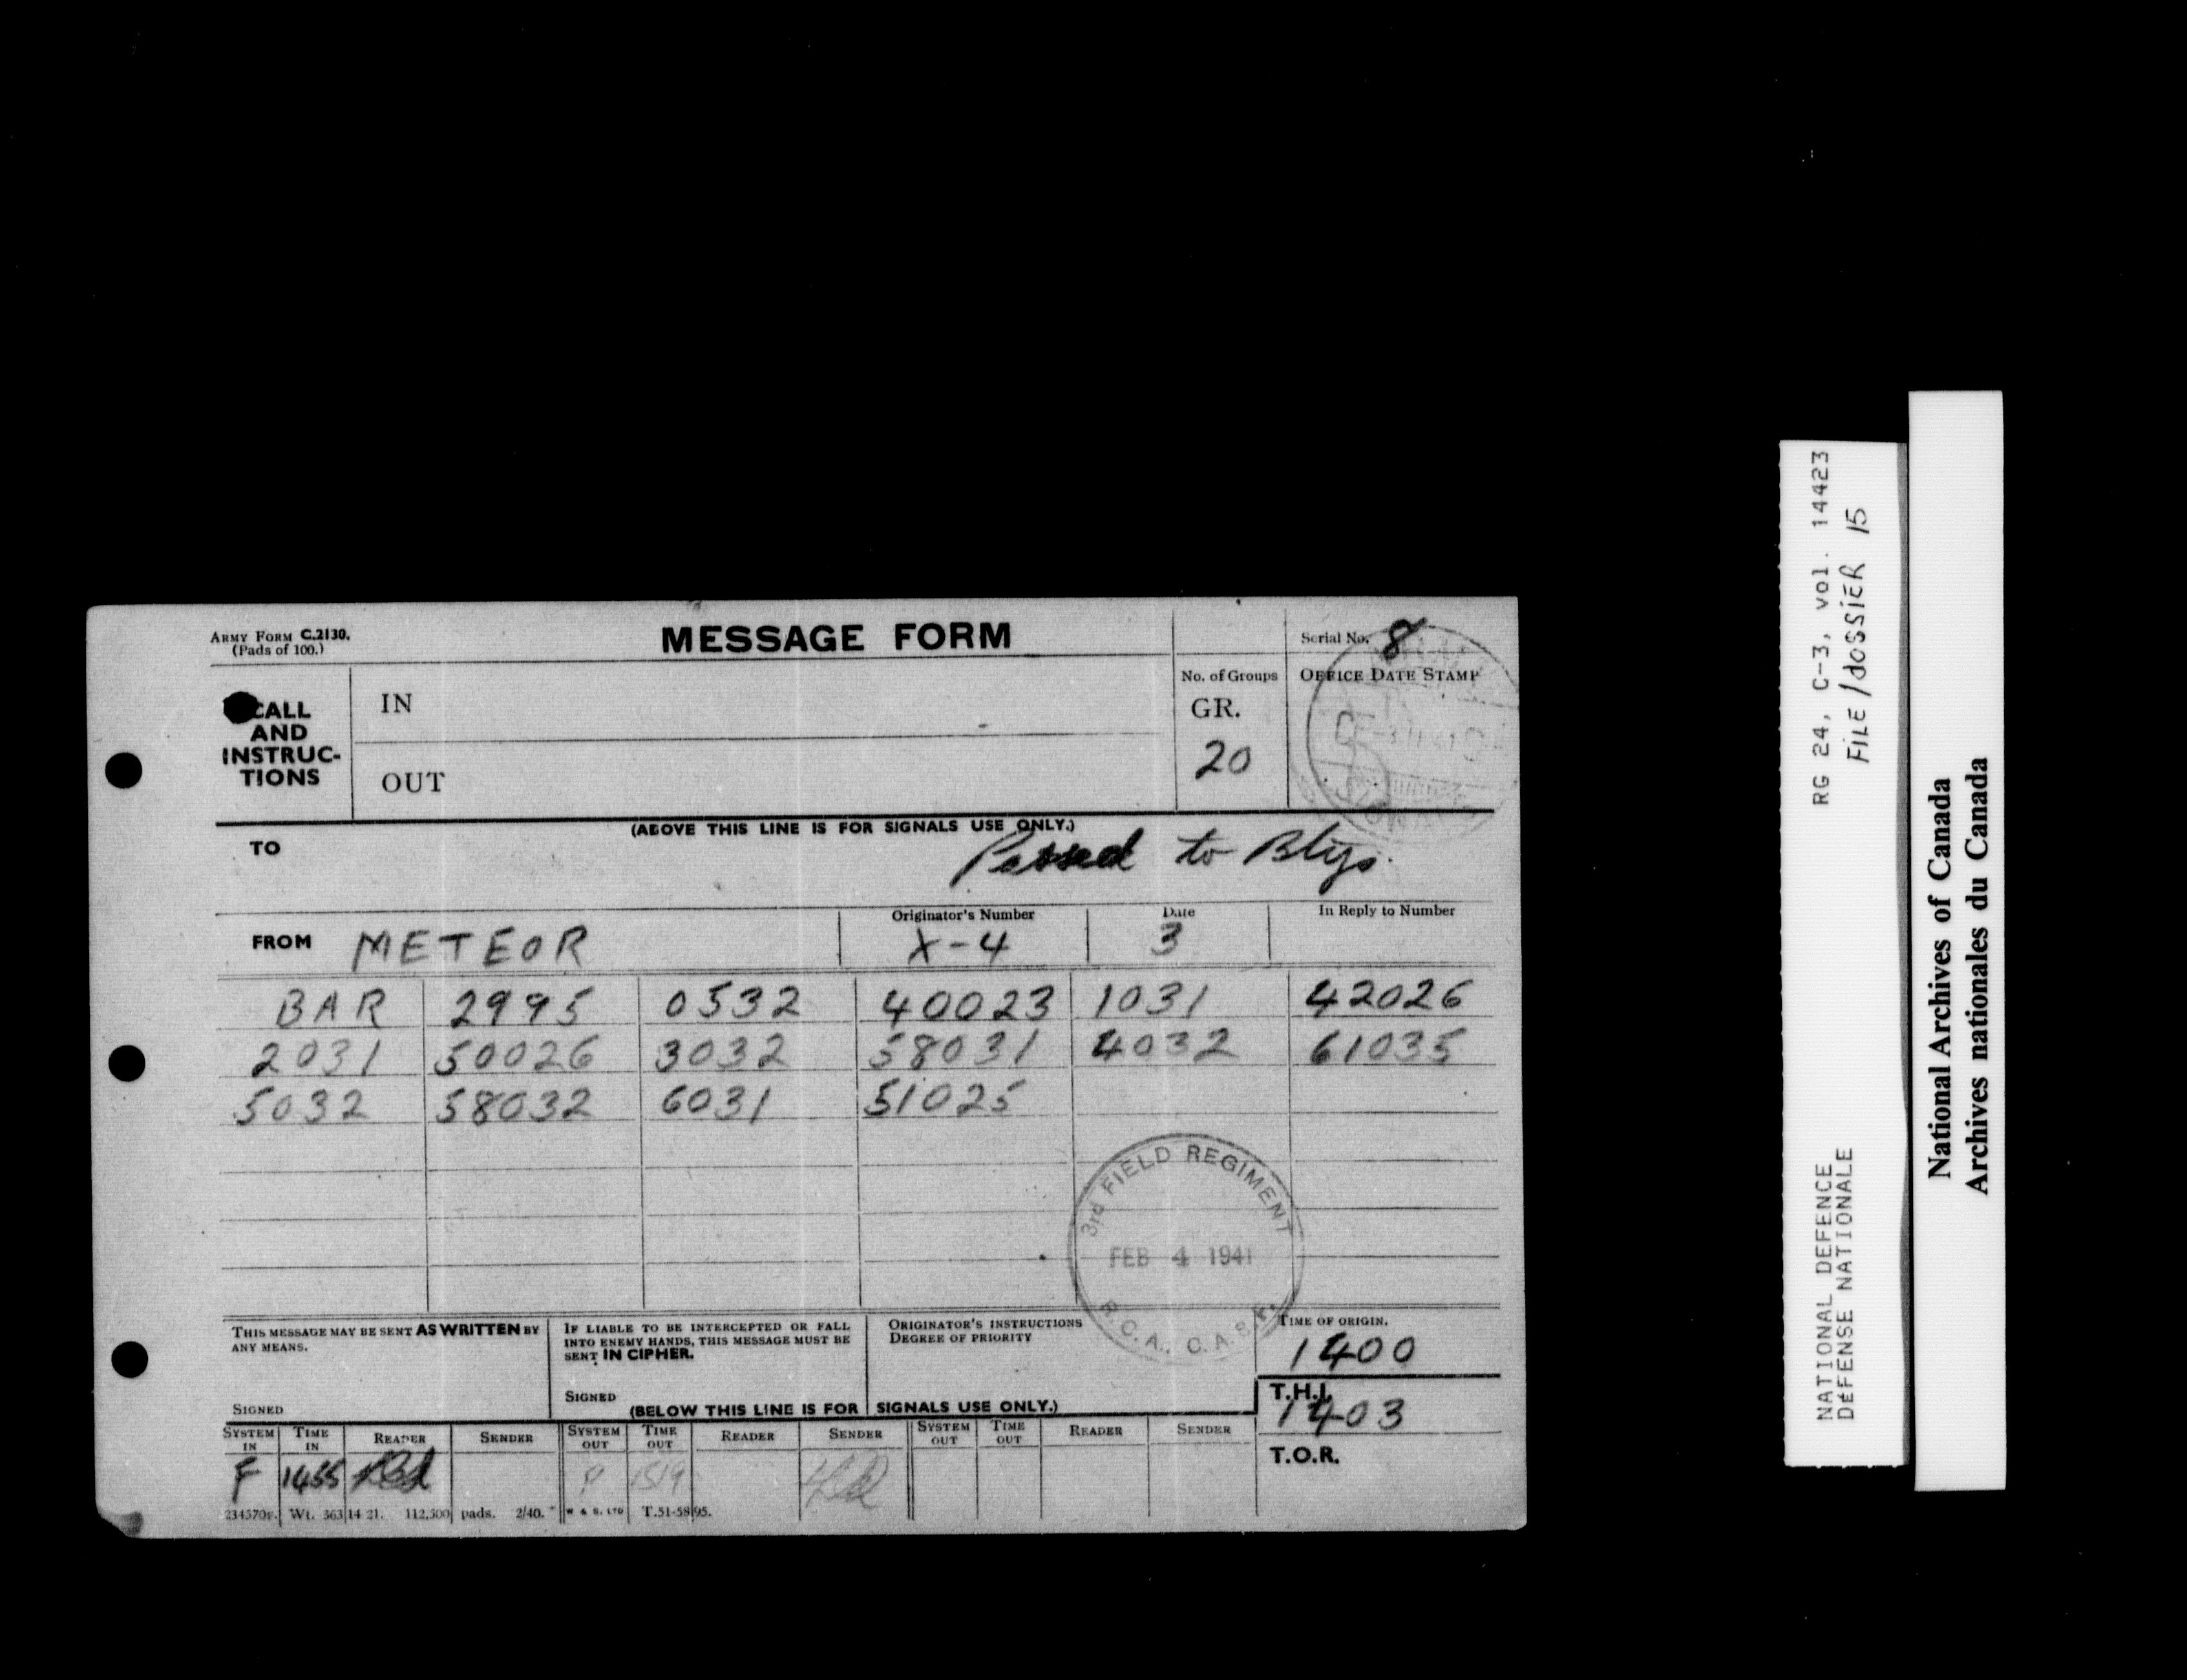 ARMY FORM C.2130.
(Pads of 100.)
MESSAGE FORM
Serial No. 8
CALL
AND
INSTRUC-
TIONS
IN
OUT
No. of Groups
GR.
20
OFFICE DATE STAMP
(ABOVE THIS LINE IS FOR SIGNALS USE ONLY.)
TO
Passed to Btys.
FROM METEOR
Originator's Number
X-4
Date
3
In Reply to Number
BAR 2995 0532 40023 1031 42026
2031 50026 3032 58031 4032 61035
5032 58032 6031 51025
3rd FIELD REGIMENT
FEB 4 1941
R.C.A., C.A.S.F.
THIS MESSAGE MAY BE SENT AS WRITTEN BY
ANY MEANS.
SIGNED
IF LIABLE TO BE INTERCEPTED OR FALL
INTO ENEMY HANDS, THIS MESSAGE MUST BE
SENT IN CIPHER.
SIGNED
ORIGINATOR'S INSTRUCTIONS
DEGREE OF PRIORITY
TIME OF ORIGIN.
1400
T.H.I.
1403
T.O.R.
(BELOW THIS LINE IS FOR SIGNALS USE ONLY.)
SYSTEM IN TIME IN READER SENDER SYSTEM OUT TIME OUT READER SENDER SYSTEM OUT TIME OUT READER SENDER
F 1455 1519
234570. Wt. 363 14 21. 112,500 pads. 2/40. W & S. LTD T.51-5895.
RG 24, C-3, vol. 14423
FILE/dOSSIER 15
NATIONAL DEFENCE
DÉFENSE NATIONALE
National Archives of Canada
Archives nationales du Canada